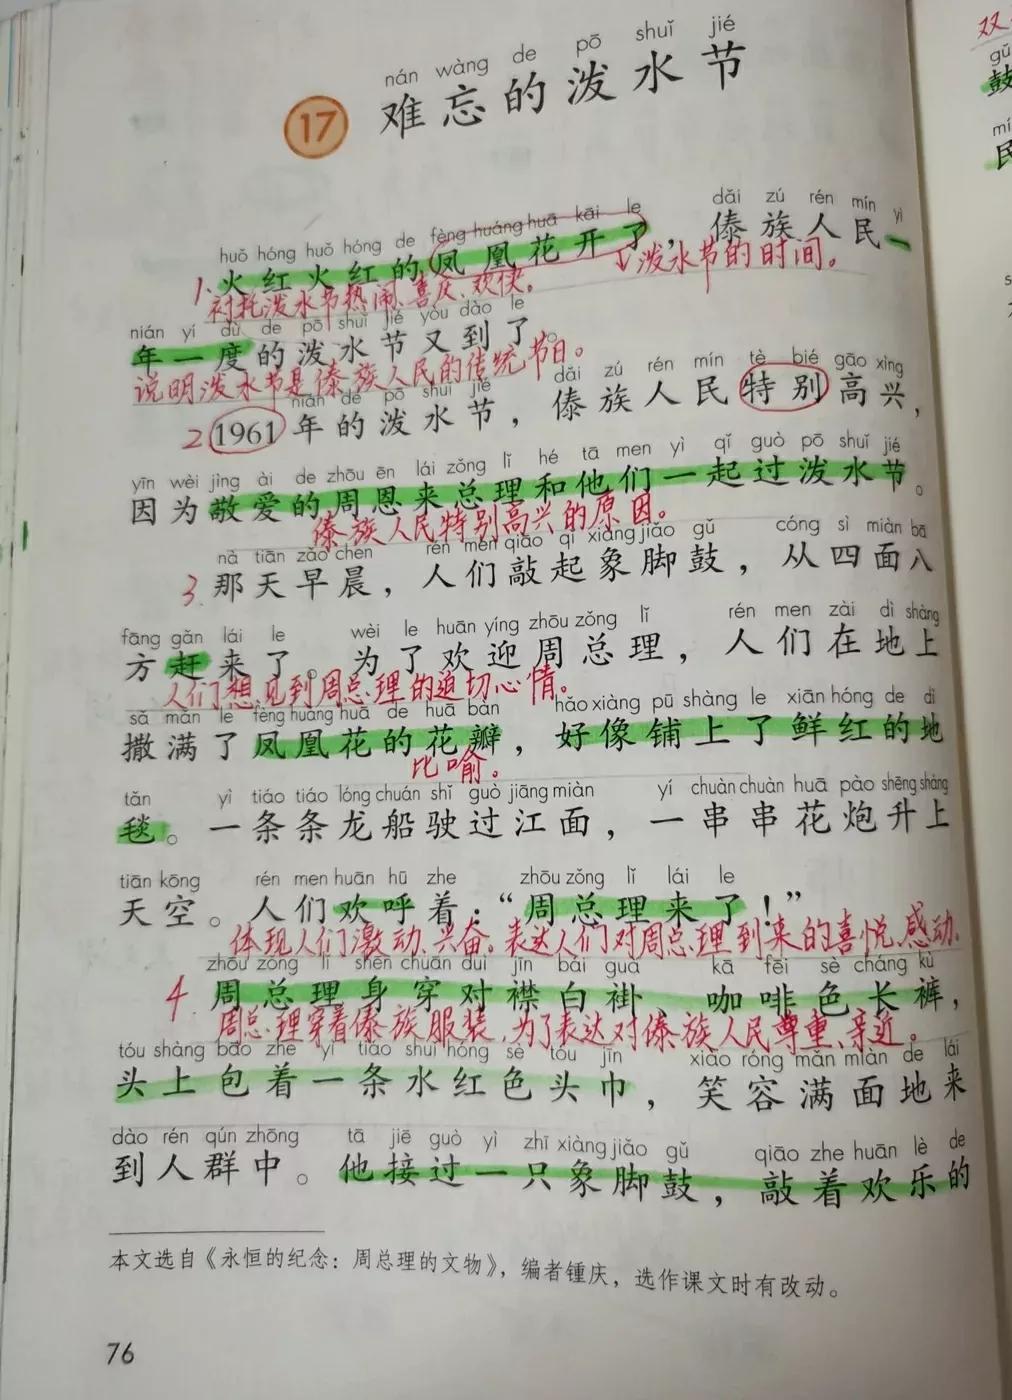 nán wàng de pō shuǐ jié
17 难忘的泼水节
huǒ hóng huǒ hóng de fèng huáng huā kāi le dǎi zú rén mín yì
1、火红火红的凤凰花开了，傣族人民一
衬托泼水节热闹、喜庆、欢快。 泼水节的时间。
nián yí dù de pō shuǐ jié yòu dào le
年一度的泼水节又到了。
说明泼水节是傣族人民的传统节日。
nián de pō shuǐ jié dǎi zú rén mín tè bié gāo xìng
2 1961年的泼水节，傣族人民特别高兴，
yīn wèi jìng ài de zhōu ēn lái zǒng lǐ hé tā men yì qǐ guò pō shuǐ jié
因为敬爱的周恩来总理和他们一起过泼水节。
傣族人民特别高兴的原因。
nà tiān zǎo chen rén men qiāo qǐ xiàng jiǎo gǔ cóng sì miàn bā
3、那天早晨，人们敲起象脚鼓，从四面八
fāng gǎn lái le wèi le huān yíng zhōu zǒng lǐ rén men zài dì shàng
方赶来了。为了欢迎周总理，人们在地上
人们想见到周总理的迫切心情。
sǎ mǎn le fèng huáng huā de huā bàn hǎo xiàng pū shàng le xiān hóng de dì
撒满了凤凰花的花瓣，好像铺上了鲜红的地
比喻。
tǎn yì tiáo tiáo lóng chuán shǐ guò jiāng miàn yí chuàn chuàn huā pào shēng shàng
毯。一条条龙船驶过江面，一串串花炮升上
tiān kōng rén men huān hū zhe zhōu zǒng lǐ lái le
天空。人们欢呼着：“周总理来了！”
体现人们激动、兴奋。表达人们对周总理到来的喜悦、感动。
zhōu zǒng lǐ shēn chuān duì jīn bái guà kā fēi sè cháng kù
4、周总理身穿对襟白褂、咖啡色长裤，
周总理穿着傣族服装，为了表达对傣族人民尊重、亲近。
tóu shàng bāo zhe yì tiáo shuǐ hóng sè tóu jīn xiào róng mǎn miàn de lái
头上包着一条水红色头巾，笑容满面地来
dào rén qún zhōng tā jiē guò yì zhī xiàng jiǎo gǔ qiāo zhe huān lè de
到人群中。他接过一只象脚鼓，敲着欢乐的
本文选自《永恒的纪念：周总理的文物》，编者锺庆，选作课文时有改动。
76
双
鼓
民